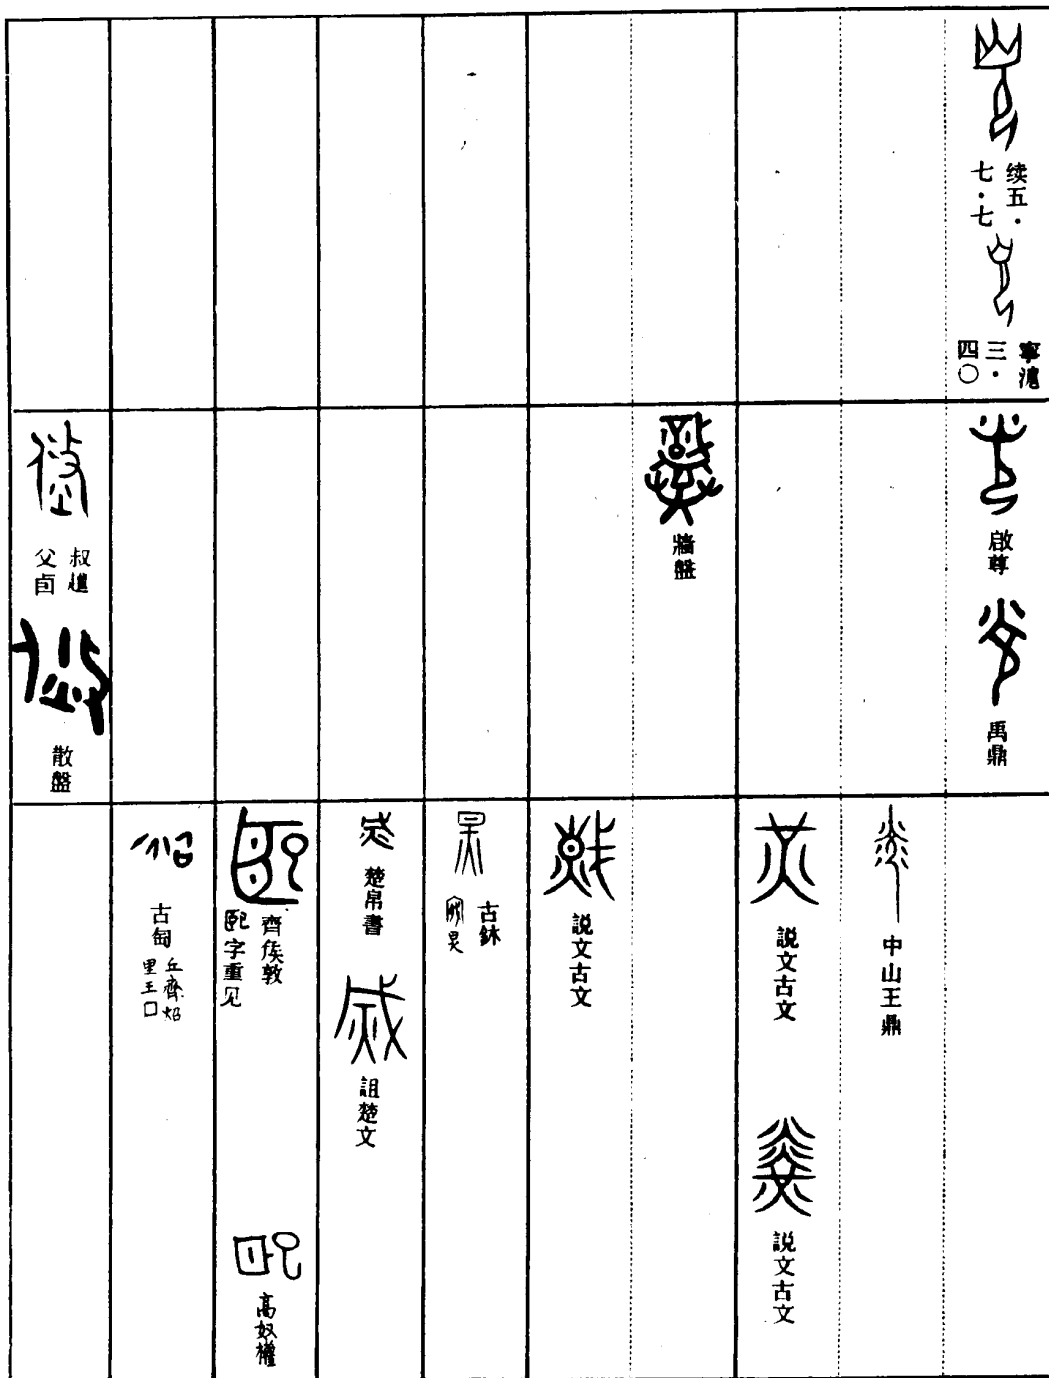 续五·
七·七
寧滬
三·
四〇
啟尊
禹鼎
牆盤
叔趯
父卣
散盤
中山王鼎
説文古文
説文古文
説文古文
古鉥
楚帛書
詛楚文
齊侯敦
配字重见
高奴權
古匋
丘齊炤
里王口